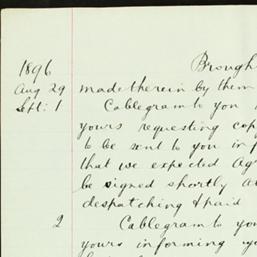 1896 Brough
Aug 29 made therein by them
Sept: 1 Cablegram to you
yours requesting cop
to be sent to you in
that we expected Ag
be signed shortly a
despatching & paid
2 Cablegram to you
yours informing you